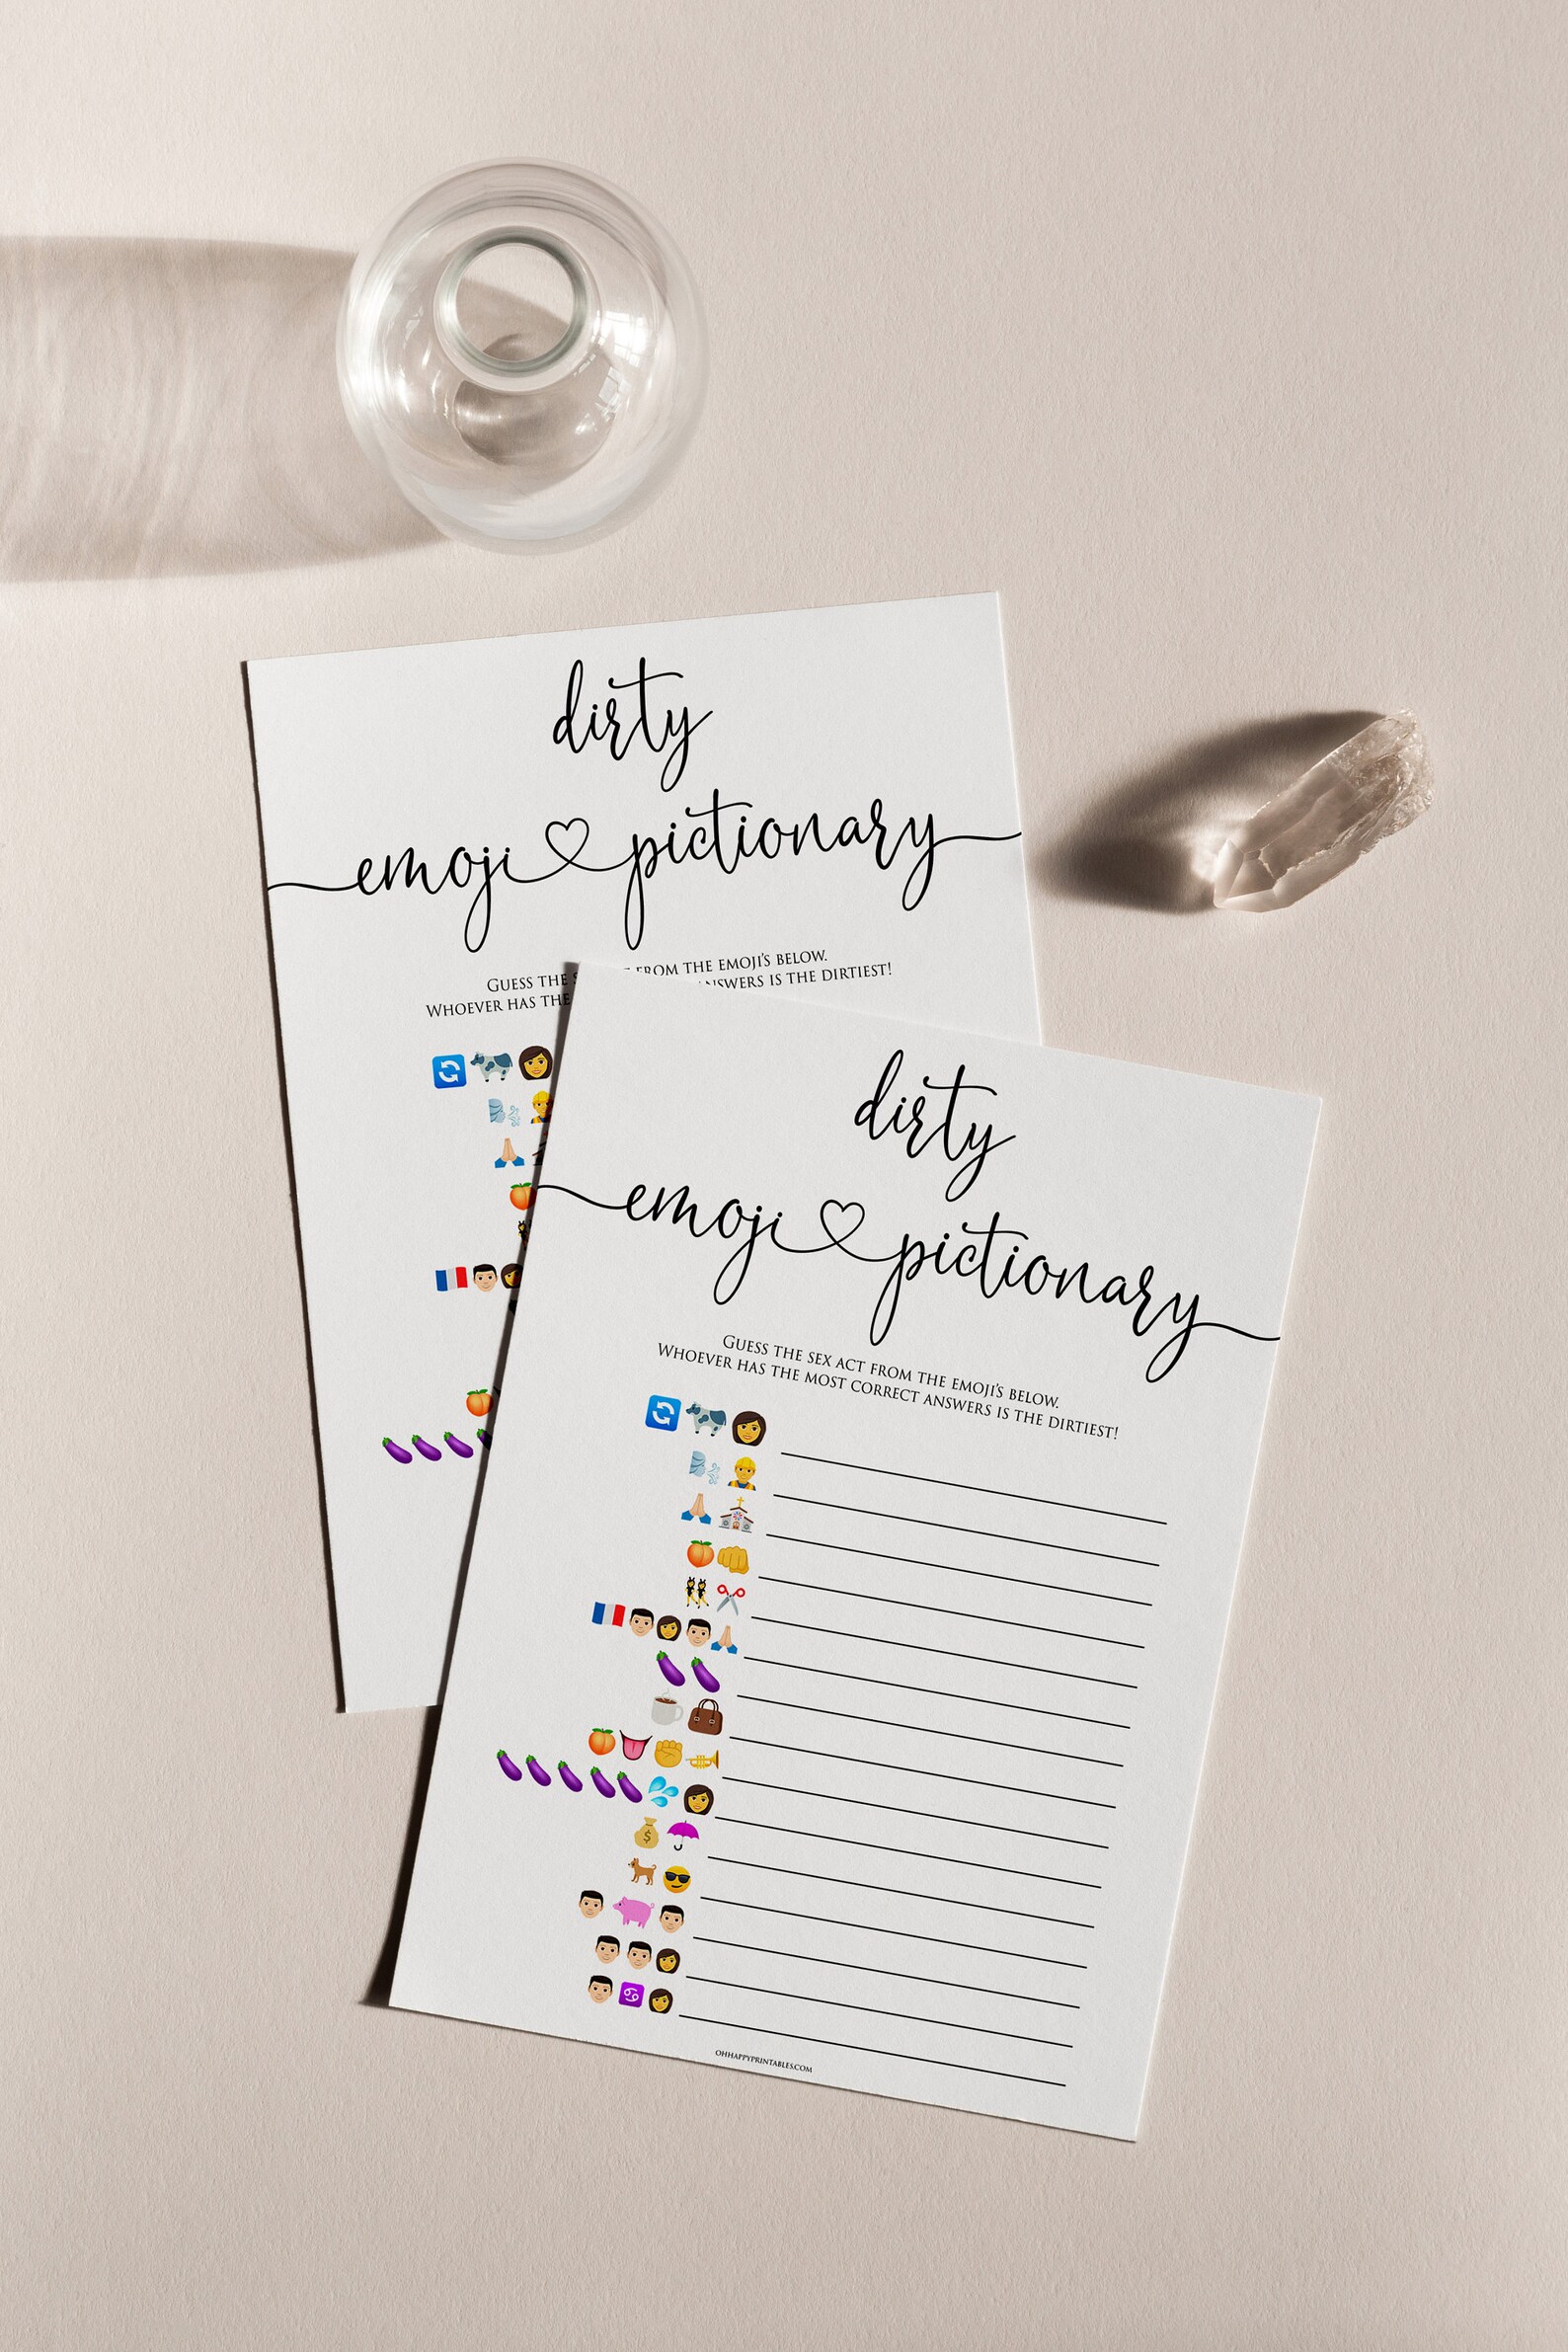 dirty
emoji pictionary
GUESS THE FROM THE EMOJI'S BELOW.
WHOEVER HAS THE ANSWERS IS THE DIRTIEST!
dirty
emoji pictionary
GUESS THE SEX ACT FROM THE EMOJI'S BELOW.
WHOEVER HAS THE MOST CORRECT ANSWERS IS THE DIRTIEST!
OHHAPPYPRINTABLES.COM